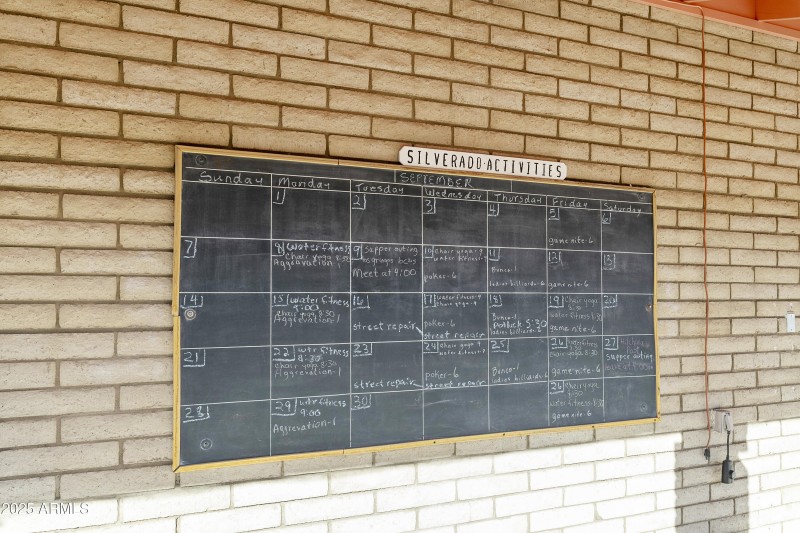 SILVERADO·ACTIVITIES
SEPTEMBER
Sunday Monday Tuesday Wednesday Thursday Friday Saturday
1 2 3 4 5 6
game nite-6
7
8 Water fitness
Chair yoga 8:30
Aggravation-1
9 Supper outing
Meet at 4:00
10 chair yoga-9
water fitness-9
poker-6
11
Bunco-1
ladies billiards-6
12
game nite-6
13
14
15 water fitness
9:00
chair yoga 8:30
Aggravation-1
16
street repair
17 water fitness-9
chair yoga-9
poker-6
street repair
18
Bunco-1
Potluck 5:30
ladies billiards-6
19 Chair yoga
8:30
water fitness
game nite-6
20
21
22 wtr fitness
chair yoga 8:30
Aggravation-1
23
street repair
24 chair yoga-9
water fitness-9
poker-6
street repair
25
Bunco-1
ladies billiards-6
26 wtr fitness
chair yoga 8:30
game nite-6
27
Supper outing
28
29 wtr fitness
9:00
Aggrevation-1
30
26 Chair yoga
8:30
water fitness
game nite-6
2025 ARMLS